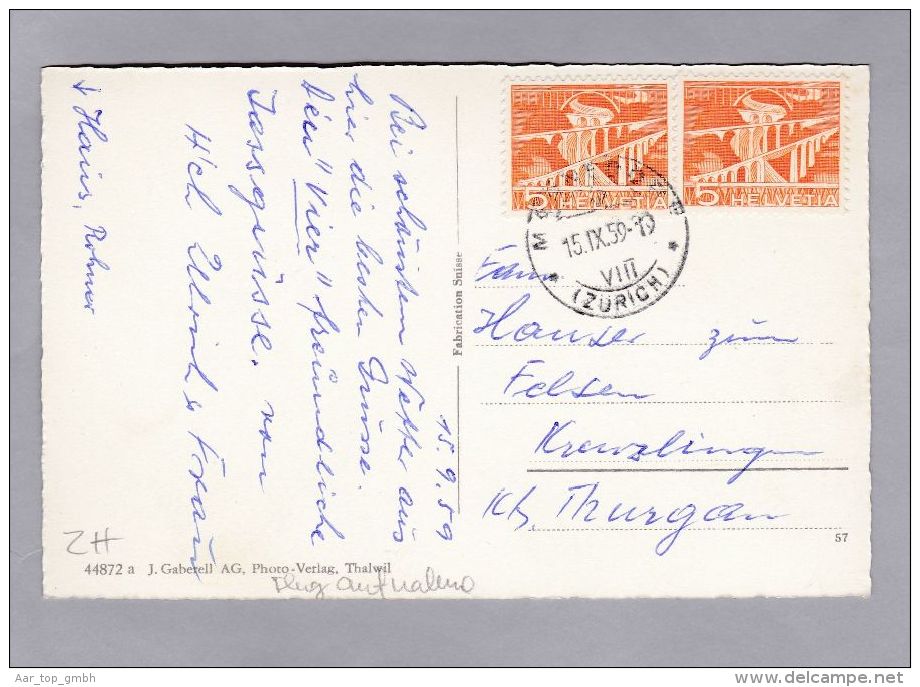 15.9.59
Bei schönstem Wetter aus
hier die besten Grüsse.
Den "Vier" freundliche
Jassgrüsse. von
Hch Ulrich & Frau
& Hans, Rohner
Fabrication Suisse
5 HELVETIA
5 HELVETIA
15.IX.59-19
VIII
(ZÜRICH)
Fam
Hauser zum
Felsen
Kreuzlingen
Kt. Thurgau
57
ZH
44872 a J. Gaberell AG, Photo-Verlag, Thalwil
Flug aufnahme
Aar_top_gmbh